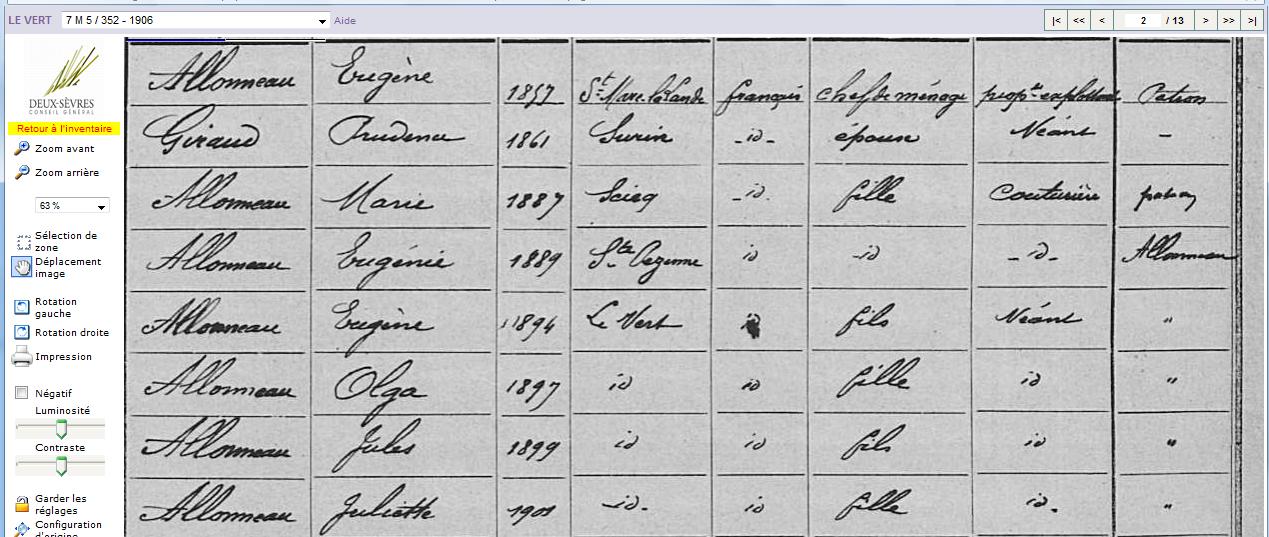 LE VERT 7 M 5 / 352 - 1906 Aide |< << < 2 / 13 > >> >|
DEUX-SÈVRES
CONSEIL GÉNÉRAL
Retour à l'inventaire
Zoom avant
Zoom arrière
63 %
Sélection de
zone
Déplacement
image
Rotation
gauche
Rotation droite
Impression
Négatif
Luminosité
Contraste
Garder les
réglages
Configuration
d'origine
Allonneau Eugène 1857 St Marc Lalande français chef de ménage propre exploitant Patron
Giraud Prudence 1861 Surin -id- épouse Néant -
Allonneau Marie 1887 Sciecq -id- fille Couturière patron
Allonneau Eugénie 1889 Ste Pezenne id -id -id- Allonneau
Allonneau Eugène 1894 Le Vert id fils Néant "
Allonneau Olga 1897 id id fille id "
Allonneau Jules 1899 id id fils id "
Allonneau Juliette 1901 -id- id fille id. "